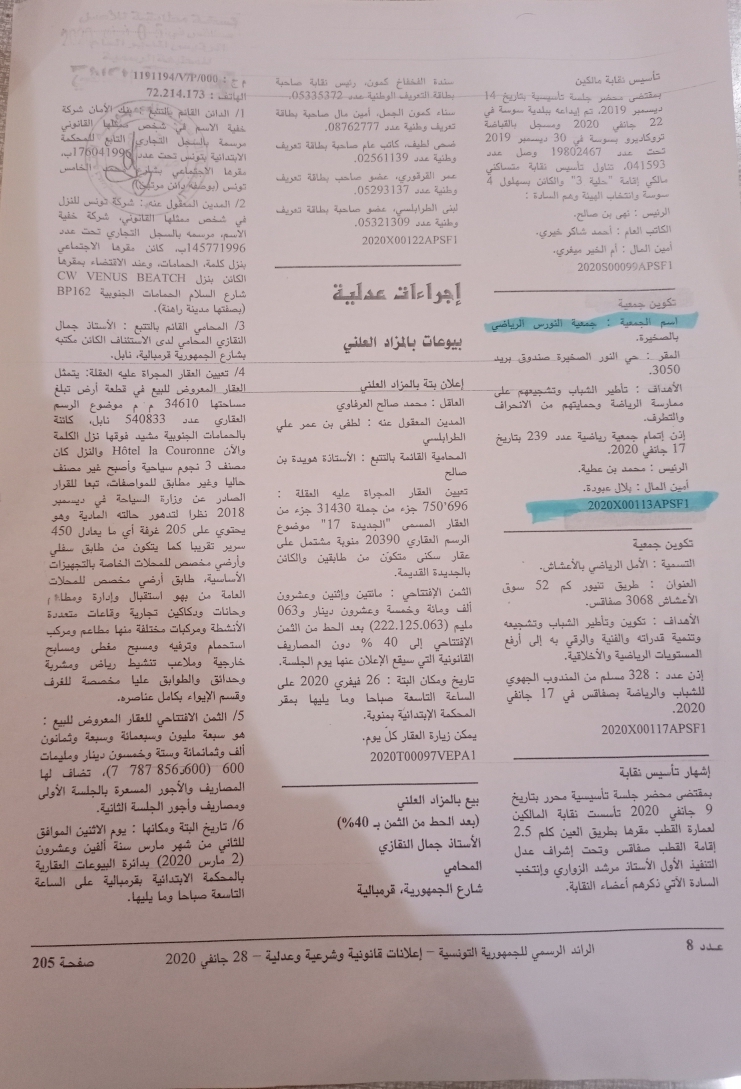 تأسيس نقابة مالكين
بمقتضى محضر جلسة تأسيسية بتاريخ 14
ديسمبر 2019، تم إيداعه ببلدية سوسة في
22 جانفي 2020 ومسجل بالقباضة
تروكاديرو بسوسة في 30 ديسمبر 2019
تحت عدد 19802467 وصل عدد
041593، تناول تأسيس نقابة متساكني
مالكي إقامة "حلية 3" والكائن بسهلول 4
سوسة وانتخاب الهيئة وهم السادة :
الرئيس : نهى بن صالح.
الكاتب العام : أحمد شاكر خيري.
أمين المال : أم الخير ميفري.
2020S00099APSF1
تكوين جمعية
اسم الجمعية : جمعية النورس الرياضي
بالصخيرة.
المقر : حي النور الصخيرة صندوق بريد
3050.
الأهداف : تأطير الشباب وتشجيعهم على
ممارسة الرياضة وحمايتهم من الانحراف
والتطرف.
إذن إتمام جمعية رياضية عدد 239 بتاريخ
17 جانفي 2020.
الرئيس : محمد بن عطية.
أمين المال : بلال عبودة.
2020X00113APSF1
تكوين جمعية
التسمية : الأمل الرياضي بالأعشاش.
العنوان : طريق تنيور كم 52 سوق
الأعشاش 3068 صفاقس.
الأهداف : تكوين وتأطير الشباب وتشجيعه
وتنمية قدراته والفنية والرقي به إلى أرفع
المستويات الرياضية والأخلاقية.
إذن عدد : 328 مسلم من المندوب الجهوي
للشباب والرياضة بصفاقس في 17 جانفي
2020.
2020X00117APSF1
إشهار تأسيس نقابة
بمقتضى محضر جلسة تأسيسية محرر بتاريخ
9 جانفي 2020 تأسست نقابة المالكين
لعمارة القطب مقرها بطريق العين كلم 2.5
إقامة القطب صفاقس وتحت إشراف عدل
التنفيذ الأول الأستاذ مرشد الزواري وانتخب
السادة الآتي ذكرهم أعضاء النقابة.
سندة الفخفاخ كمون، رئيس نقابة صاحبة
بطاقة التعريف الوطنية عدد 05335372.
سناء كمون الجمل، أمين مال صاحبة بطاقة
تعريف وطنية عدد 08762777.
ضحى لطيف، كاتب عام صاحبة بطاقة تعريف
وطنية عدد 02561139.
عمر القرقوري، عضو صاحب بطاقة تعريف
وطنية عدد 05293137.
لبنى الطرابلسي، عضو صاحبة بطاقة تعريف
وطنية عدد 05321309.
2020X00122APSF1
إجراءات عدلية
بيوعات بالمزاد العلني
إعلان بتة بالمزاد العلني
العاقل : محمد صالح العرفاوي
المدين المعقول عنه : لطفي بن عمر علي
الطرابلسي
المحامية القائمة بالتتبع : الأستاذة هويدة بن
صالح
تعيين العقار المجراة عليه العقلة :
750'696 جزء من جملة 31430 جزء من
العقار المسمى "الجديدة 17" موضوع
الرسم العقاري 20390 منوبة مشتمل على
عقار سكني متكون من طابقين والكائن
بالجديدة القديمة.
الثمن الإفتتاحي : مائتين وإثنين وعشرون
ألف ومائة وخمسة وعشرون دينار و063
مليم (222.125.063) بعد الحط من الثمن
الإفتتاحي إلى 40 % دون المصاريف
القانونية التي سيقع الإعلان عنها يوم الجلسة.
تاريخ ومكان البتة : 26 فيفري 2020 على
الساعة التاسعة صباحا وما يليها بمقر
المحكمة الإبتدائية بمنوبة.
يمكن زيارة العقار كل يوم.
2020T00097VEPA1
بيع بالمزاد العلني
(بعد الحط من الثمن بـ 40%)
الأستاذ جمال النقازي
المحامي
شارع الجمهورية، قرمبالية
1191194/V7P/000
الهاتف : 72.214.173
1/ الدائن القائم بالتتبع : بنك الأمان شركة
خفية الاسم في شخص ممثلها القانوني
مرسمة بالسجل التجاري التابع للمحكمة
الابتدائية بتونس تحت عدد
مقرها الاجتماعي بشارع الخامس
تونس (بوصفه دائن مرتهن)
2/ المدين المعقول عنه : شركة تونس للنزل
في شخص ممثلها القانوني، شركة خفية
الاسم، مرسمة بالسجل التجاري تحت عدد
ب145771996، كائن مقرها الاجتماعي
بنزل كلمة، الحمامات، وعند الاقتضاء بمقرها
الكائن بنزل CW VENUS BEATCH
شارع السلام الحمامات الجنوبية BP162
(بصفتها مدينة راهنة).
3/ المحامي القائم بالتتبع : الأستاذ جمال
النقازي المحامي لدى الاستئناف الكائن مكتبه
بشارع الجمهورية قرمبالية، نابل.
4/ تعيين العقار المجراة عليه العقلة: يتمثل
العقار المعروض للبيع في قطعة أرض تبلغ
مساحتها 34610 م م موضوع الرسم
العقاري عدد 540833 نابل، كائنة
بالحمامات الجنوبية مشيد فوقها نزل الكلمة
والآن Hôtel la Couronne والنزل كان
مصنف 3 نجوم سياحية وأصبح غير مصنف
حاليا وغير مطابق للمواصفات، تبعا للقرار
الصادر عن وزارة السياحة في ديسمبر
2018 نظرا لتدهور حالته المادية وهو
يحتوي على 205 غرفة أي ما يعادل 450
سرير تقريبا كما يتكون من طابق سفلي
وأرضي مخصص للمحلات الخاصة بالتجهيزات
الأساسية، طابق أرضي مخصص للمحلات
العامة من بهو استقبال وإدارة ومطاعم
وحانات ودكاكين تجارية وقاعات متعددة
الأنشطة ومركبات مختلفة منها مطاعم ومركب
استحمام وترفيه ومسبح مغطى ومسابح
خارجية وملاعب تنشيط رياض ومشربة
وحدائق والطوابق عليا مخصصة للغرف
وقسم الإيواء بكامل عناصره.
5/ الثمن الافتتاحي للعقار المعروض للبيع :
هو سبعة مليون وسبعمائة وسبعة وثمانون
ألف وثمانمائة وستة وخمسون دينار ومليمات
600 (7 787 856,600د)، تضاف لها
المصاريف والأجور المسعرة بالجلسة الأولى
ومصاريف وأجور الجلسة الثانية.
6/ تاريخ البتة ومكانها : يوم الاثنين الموافق
للثاني من شهر مارس سنة ألفين وعشرون
(2 مارس 2020) بدائرة البيوعات العقارية
بالمحكمة الابتدائية بقرمبالية على الساعة
التاسعة صباحا وما يليها.
عدد 8
الرائد الرسمي للجمهورية التونسية – إعلانات قانونية وشرعية وعدلية – 28 جانفي 2020
صفحة 205